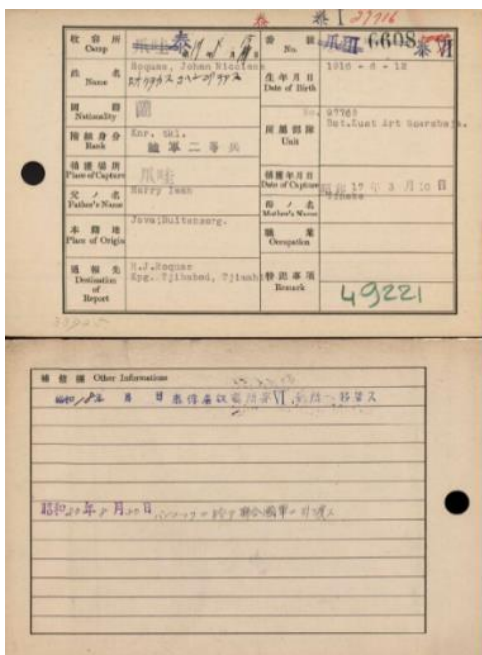 泰 I 27716
收容所 Camp 爪哇 泰
番號 No. 爪 III 6608 泰 VI
姓名 Name Roquas, Johan Nicolaas
生年月日 Date of Birth 1916 - 6 - 12
國籍 Nationality 蘭
階級身分 Rank Knr. tkl. 陸軍二等兵
所屬部隊 Unit No. 97763 Bat.Kust Art Soerabaja.
捕獲場所 Place of Capture 爪哇
捕獲年月日 Date of Capture 昭和 17 年 3 月 10 日
父ノ名 Father's Name Harry Iwan
母ノ名 Mother's Name
本籍地 Place of Origin Java; Buitenzorg.
職業 Occupation
通報先 Destination of Report H.J.Roquas Kpg. Tjibabad, Tjimahi
特記事項 Remark 49221
補修欄 Other Informations
昭和 18 年 月 日 泰俘虜収容所第 VI 分所ヘ移管ス
昭和 20 年 8 月 30 日 ニ於テ聯合國軍ニ引渡ス